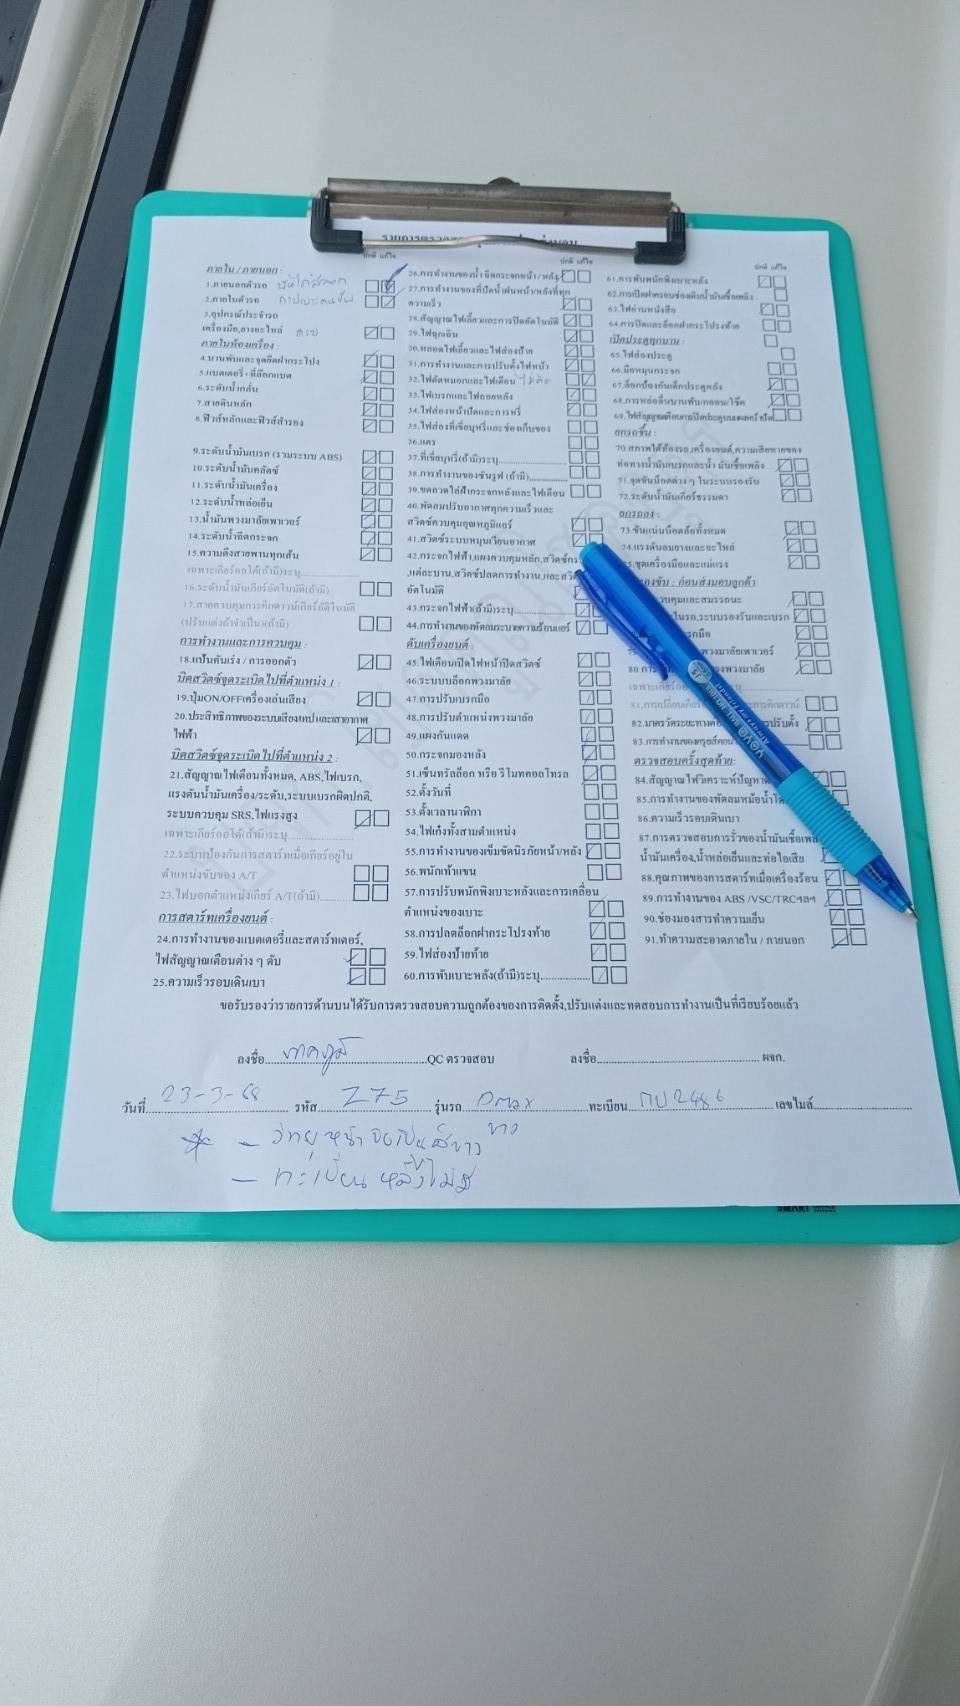 ปกติ แก้ไข
ภายใน / ภายนอก :
1.ภายนอกตัวรถ
2.ภายในตัวรถ
3.อุปกรณ์ประจำรถ
เครื่องมือ,ยางอะไหล่ ครบ
ภายในห้องเครื่อง :
4.บานพับและจุดยึดฝากระโปรง
5.แบตเตอรี่+ที่ล๊อกแบต
6.ระดับน้ำกลั่น
7.สายดินหลัก
8.ฟิวส์หลักและฟิวส์สำรอง
9.ระดับน้ำมันเบรก (รวมระบบ ABS)
10.ระดับน้ำมันคลัตช์
11.ระดับน้ำมันเครื่อง
12.ระดับน้ำหล่อเย็น
13.น้ำมันพวงมาลัยเพาเวอร์
14.ระดับน้ำฉีดกระจก
15.ความตึงสายพานทุกเส้น
เฉพาะเกียร์ออโต้(ถ้ามี)ระบุ
16.ระดับน้ำมันเกียร์อัตโนมัติ(ถ้ามี)
17.สายควบคุมการคิกดาวน์เกียร์อัติโนมัติ
(ปรับแต่งถ้าจำเป็น)(ถ้ามี)
การทำงานและการควบคุม :
18.แป้นคันเร่ง / การออกตัว
บิดสวิตซ์จุดระเบิดไปที่ตำแหน่ง 1 :
19.ปุ่มON/OFFเครื่องเล่นเสียง
20.ประสิทธิภาพของระบบเสียงเทปและเสาอากาศ
ไฟฟ้า
บิดสวิตซ์จุดระเบิดไปที่ตำแหน่ง 2 :
21.สัญญาณไฟเตือนทั้งหมด, ABS,ไฟเบรก,
แรงดันน้ำมันเครื่อง/ระดับ,ระบบเบรกผิดปกติ,
ระบบควบคุม SRS,ไฟแรงสูง
เฉพาะเกียร์ออโต้(ถ้ามี)ระบุ
22.ระบบป้องกันการสตาร์ทเมื่อเกียร์อยู่ใน
ตำแหน่งขับของ A/T
23.ไฟบอกตำแหน่งเกียร์ A/T(ถ้ามี)
การสตาร์ทเครื่องยนต์ :
24.การทำงานของแบตเตอรี่และสตาร์ทเตอร์,
ไฟสัญญาณเตือนต่าง ๆ ดับ
25.ความเร็วรอบเดินเบา
26.การทำงานของน้ำฉีดกระจกหน้า/หลัง
27.การทำงานของที่ปัดน้ำฝนหน้า/หลังที่ทุก
ความเร็ว
28.สัญญาณไฟเลี้ยวและการปิดอัตโนมัติ
29.ไฟฉุกเฉิน
30.หลอดไฟเลี้ยวและไฟส่องป้าย
31.การทำงานและการปรับตั้งไฟหน้า
32.ไฟตัดหมอกและไฟเตือน
33.ไฟเบรกและไฟถอยหลัง
34.ไฟส่องหน้าปัดและการหรี่
35.ไฟส่องที่เขี่ยบุหรี่และช่องเก็บของ
36.แตร
37.ที่เขี่ยบุหรี่(ถ้ามี)ระบุ
38.การทำงานของซันรูฟ (ถ้ามี)
39.ขดลวดไล่ฝ้ากระจกหลังและไฟเตือน
40.พัดลมปรับอากาศทุกความเร็วและ
สวิตซ์ควบคุมอุณหภูมิแอร์
41.สวิตซ์ระบบหมุนเวียนอากาศ
42.กระจกไฟฟ้า,แผงควบคุมหลัก,สวิตซ์กระ
,แต่ละบาน,สวิตซ์ปลดการทำงาน,และสวิ
อัตโนมัติ
43.กระจกไฟฟ้า(ถ้ามี)ระบุ
44.การทำงานของพัดลมระบายความร้อนแอร์
ดับเครื่องยนต์ :
45.ไฟเตือนเปิดไฟหน้าปิดสวิตซ์
46.ระบบบล็อกพวงมาลัย
47.การปรับเบรกมือ
48.การปรับตำแหน่งพวงมาลัย
49.แผงกันแดด
50.กระจกมองหลัง
51.เซ็นทรัลล็อก หรือ รีโมทคอลโทรล
52.ตั้งวันที่
53.ตั้งเวลานาฬิกา
54.ไฟเก๋งทั้งสามตำแหน่ง
55.การทำงานของเข็มขัดนิรภัยหน้า/หลัง
56.พนักเท้าแขน
57.การปรับพนักพิงเบาะหลังและการเคลื่อน
ตำแหน่งของเบาะ
58.การปลดล็อกฝากระโปรงท้าย
59.ไฟส่องป้ายท้าย
60.การพับเบาะหลัง(ถ้ามี)ระบุ
ปกติ แก้ไข
61.การพับพนักพิงเบาะหลัง
62.การเปิดฝาครอบช่องเติมน้ำมันเชื้อเพลิง
63.ไฟอ่านหนังสือ
64.การปิดและล็อกฝากระโปรงท้าย
เปิดประตูทุกบาน :
65.ไฟส่องประตู
66.มือหมุนกระจก
67.ล็อกป้องกันเด็กประตูหลัง
68.การหล่อลื่นบานพับ/กลอน/โช๊ค
69.ไฟสัญญาณเตือนการปิดประตู
ยกรถขึ้น :
70.สภาพใต้ท้องรถ,เครื่องยนต์,ความเสียหายของ
ท่อทางน้ำมันเบรกและน้ำมันเชื้อเพลิง
71.จุดขันน็อตต่าง ๆ ในระบบรองรับ
72.ระดับน้ำมันเกียร์ธรรมดา
ยกรถลง :
73.ขันแน่นน็อตล้อทั้งหมด
74.แรงดันลมยางและอะไหล่
75.ชุดเครื่องมือและแม่แรง
ลองขับ : ก่อนส่งมอบลูกค้า
ควบคุมและสมรรถนะ
ในรถ,ระบบรองรับและเบรก
รกมือ
พวงมาลัยเพาเวอร์
80.กา ของพวงมาลัย
81.การเปลี่ยนเกียร์ การคิกดาวน์
82.มาตรวัดระยะทาง ปรับตั้ง
83.การทำงานของครูยส์คอน
ตรวจสอบครั้งสุดท้าย:
84.สัญญาณไฟวิเคราะห์ปัญหา
85.การทำงานของพัดลมหม้อน้ำ
86.ความเร็วรอบเดินเบา
87.การตรวจสอบการรั่วของน้ำมันเชื้อเพลิ
น้ำมันเครื่อง,น้ำหล่อเย็นและท่อไอเสีย
88.คุณภาพของการสตาร์ทเมื่อเครื่องร้อน
89.การทำงานของ ABS /VSC/TRCฯลฯ
90.ช่องมองสารทำความเย็น
91.ทำความสะอาดภายใน / ภายนอก
ขอรับรองว่ารายการด้านบนได้รับการตรวจสอบความถูกต้องของการติดตั้ง,ปรับแต่งและทดสอบการทำงานเป็นที่เรียบร้อยแล้ว
ลงชื่อ ภาคภูมิ QC ตรวจสอบ ลงชื่อ ผจก.
วันที่ 23-3-68 รหัส Z75 รุ่นรถ Dmax ทะเบียน กบ2486 เลขไมล์
- วิทยุหน้าจอเป็นสีขาว
- ทะเบียนหลังไม่มี
VOVO
SMART